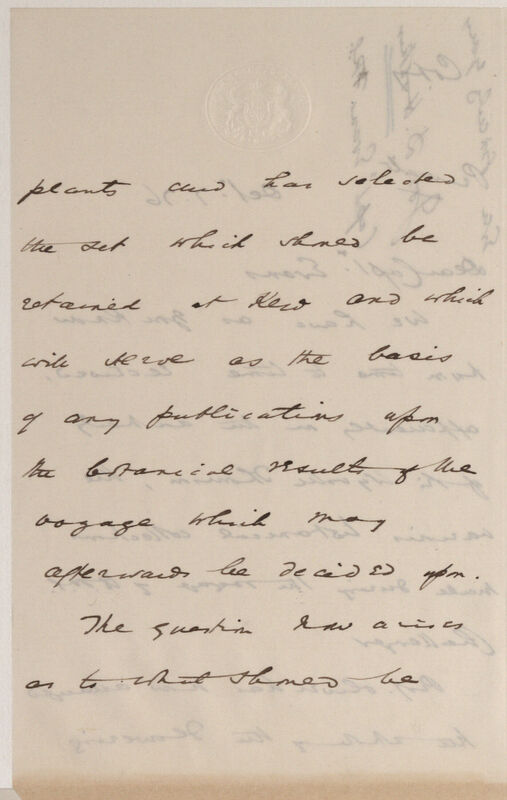 plants and has selected
the set which should be
retained at Kew and which
will serve as the basis
of any publications upon
the botanical results of the
voyage which may
afterwards be decided upon.
The question now arises
as to what should be